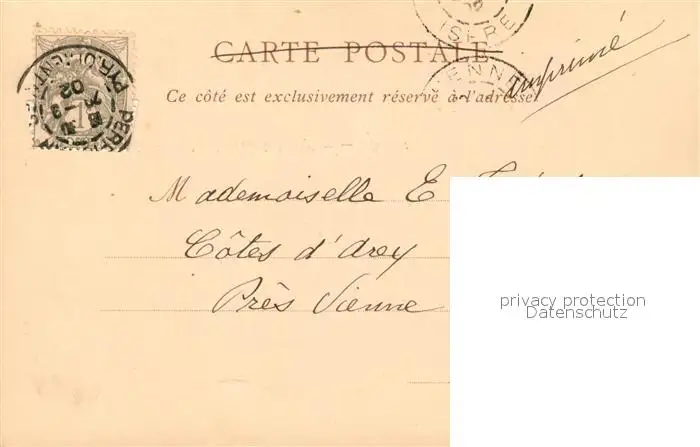 CARTE POSTALE
imprimé
Ce côté est exclusivement réservé à l'adresse
Mademoiselle E.
Côtes d'Arey
Près Vienne
privacy protection
Datenschutz
PYR. ORIENT
02
ISERE
VIENNE